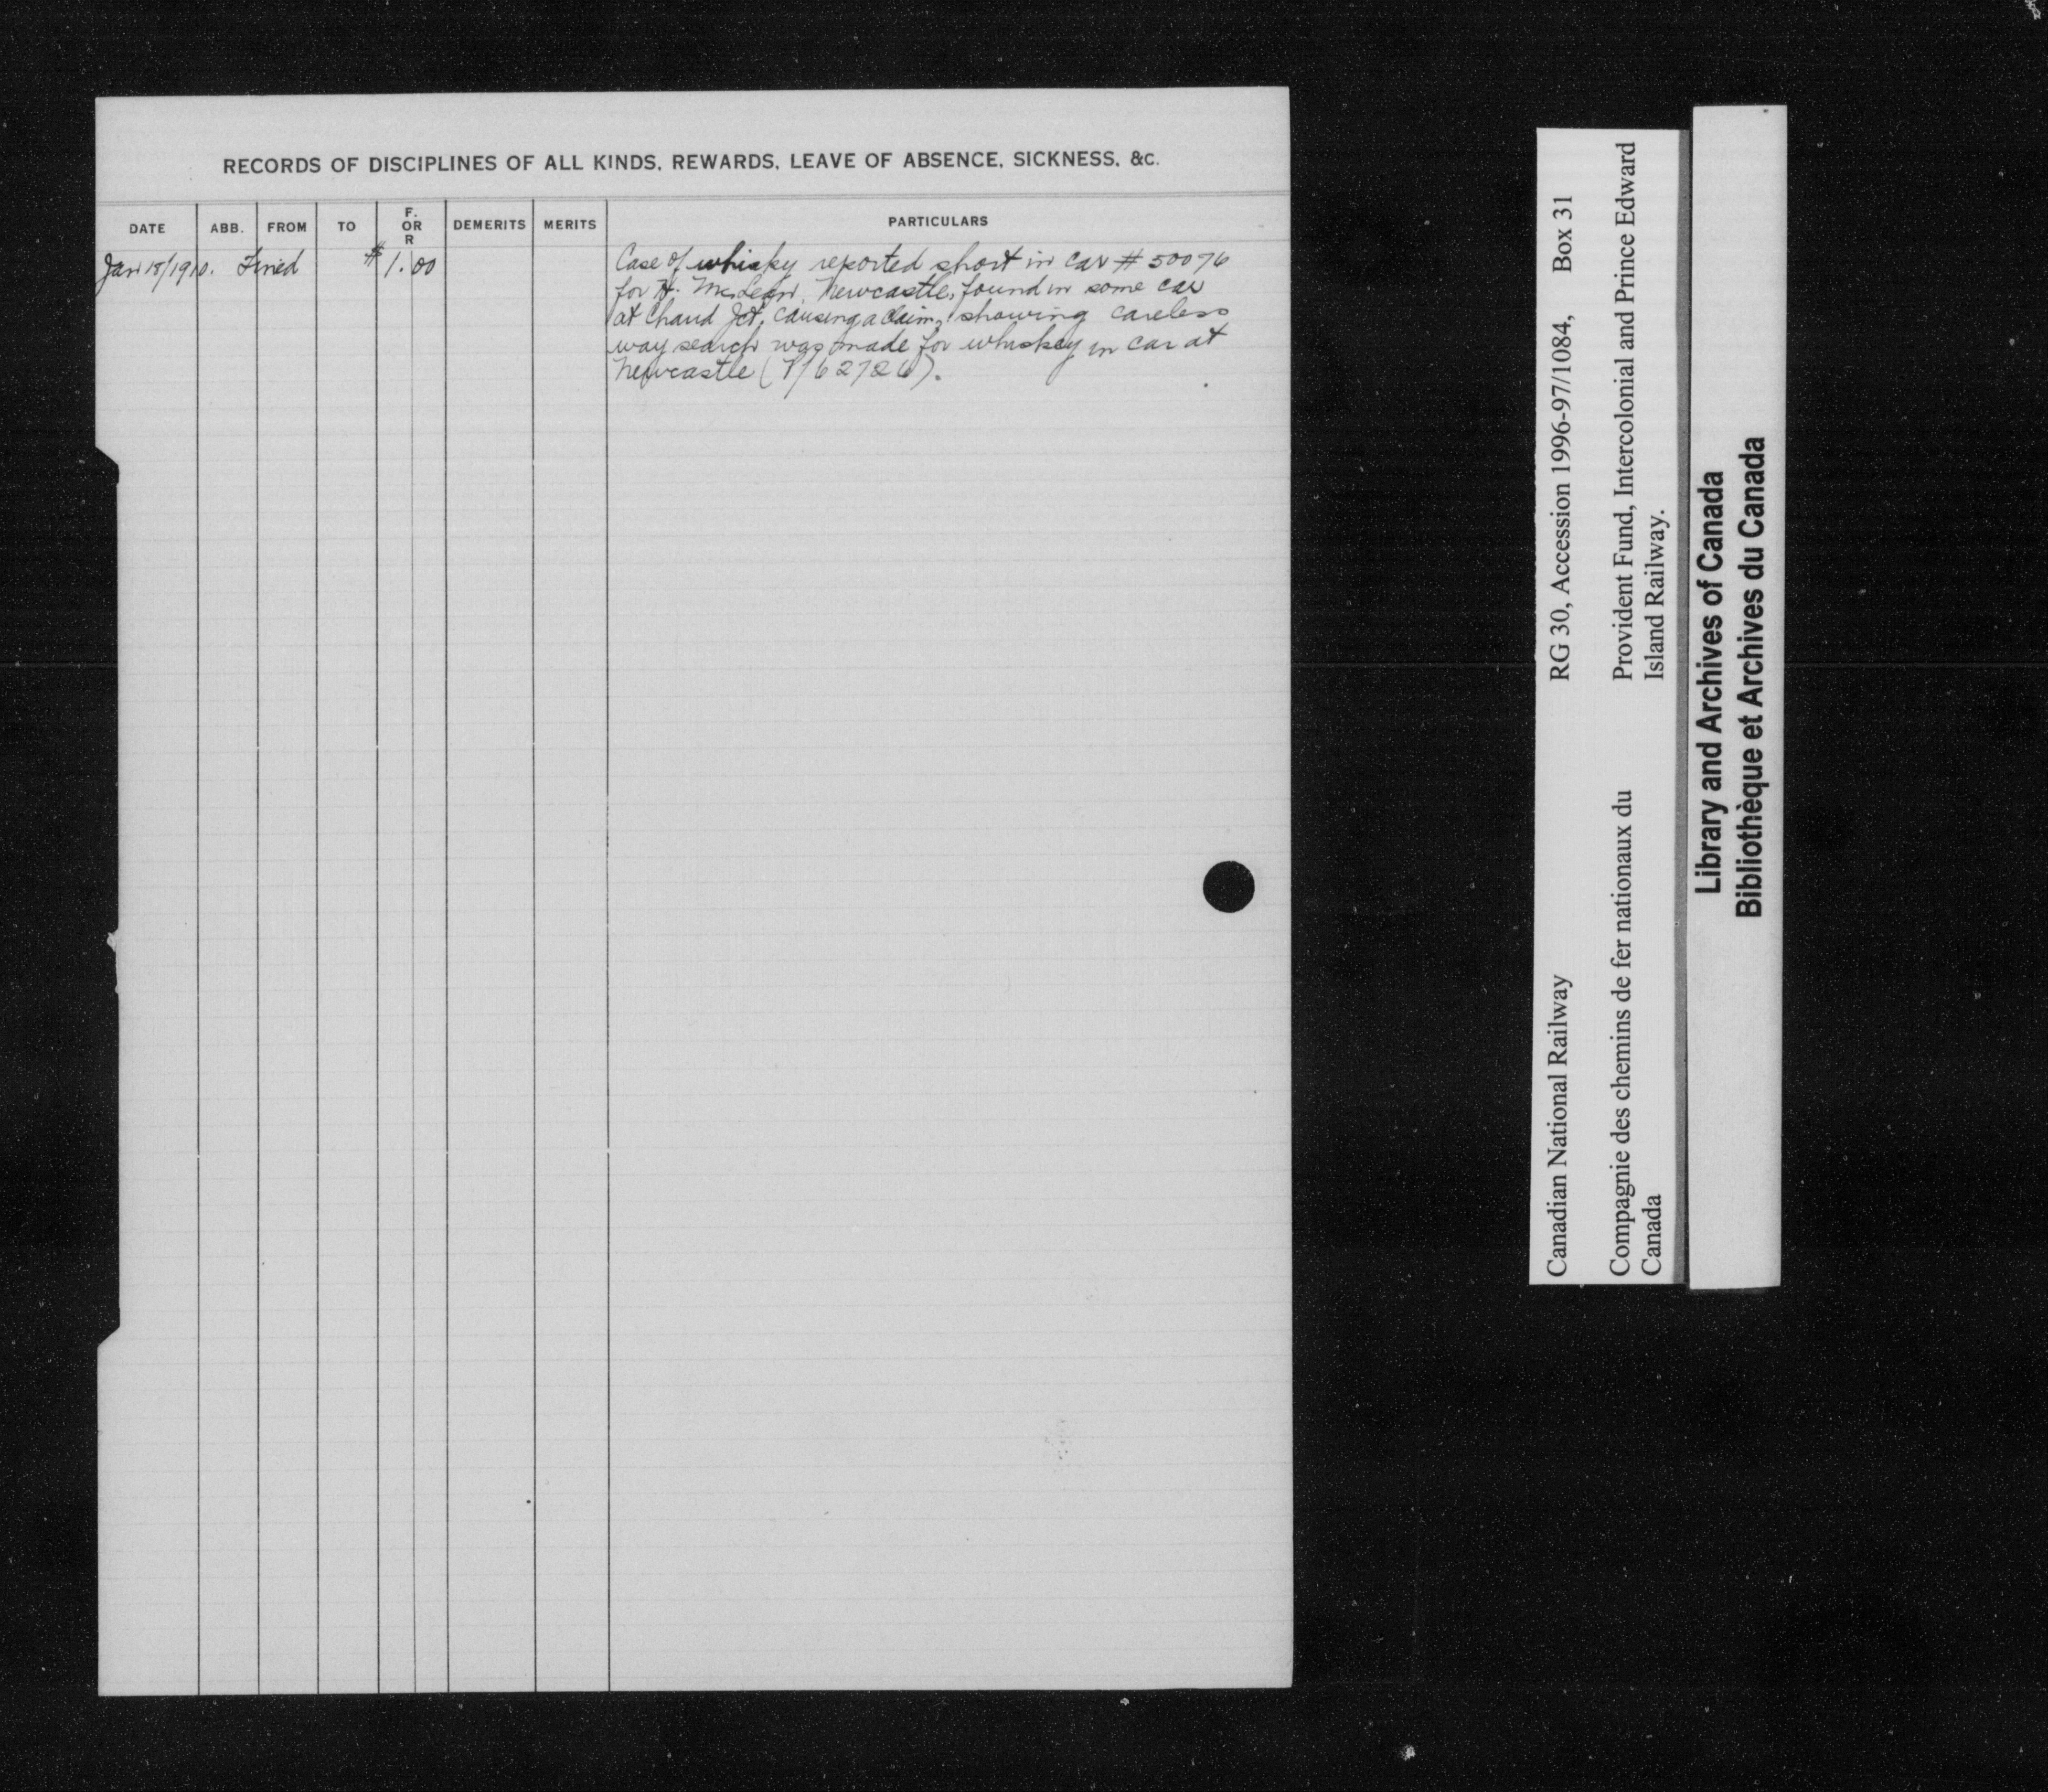 RECORDS OF DISCIPLINES OF ALL KINDS, REWARDS, LEAVE OF ABSENCE, SICKNESS, &C.
DATE ABB. FROM TO F. OR R DEMERITS MERITS PARTICULARS
Jan 18/1910. Fined $1.00 Case of whisky reported short in car # 50076
for H. McLean, Newcastle, found in same car
at Chaud Jct, causing a claim, showing careless
way search was made for whiskey in car at
Newcastle
Canadian National Railway RG 30, Accession 1996-97/1084, Box 31
Compagnie des chemins de fer nationaux du Provident Fund, Intercolonial and Prince Edward
Canada Island Railway.
Library and Archives of Canada
Bibliothèque et Archives du Canada